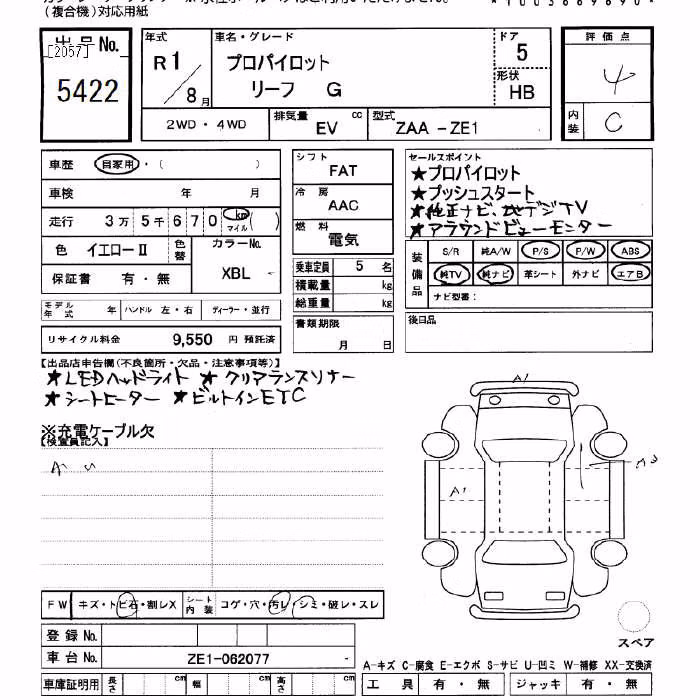 （複合機）対応用紙
*1003669690*
出品No.
[2057]
5422
年式
R1/8月
車名・グレード
プロパイロット
リーフ G
ドア
5
形状
HB
2WD・4WD
排気量
EV
cc
型式
ZAA -ZE1
評価点
4
内装
C
車歴 自家用・（ ）
車検 年 月
走行 3万5千670 km マイル ( )
色 イエローⅡ
色替
カラーNo.
XBL -
保証書 有・無
モデル年式 年
ハンドル 左・右
ディーラー・並行
リサイクル料金 9,550 円 預託済
シフト
FAT
冷房
AAC
燃料
電気
乗車定員 5 名
積載量 kg
総重量 kg
書類期限
月 日
セールスポイント
★プロパイロット
★プッシュスタート
★純正ナビ、地デジTV
★アラウンドビューモニター
装備品
S/R 純A/W P/S P/W ABS
純TV 純ナビ 革シート 外ナビ エアB
ナビ型番：
後日品
【出品店申告欄(不良箇所・欠品・注意事項等)】
★LEDヘッドライト ★クリアランスソナー
★シートヒーター ★ビルトインETC
※充電ケーブル欠
【検査員記入】
A1
A1
FW キズ・トビ石・割レX
シート内装 コゲ・穴・汚レ・シミ・破レ・スレ
登録No.
車台No. ZE1-062077 -
車庫証明用 長さ cm 幅 cm 高さ cm
スペア
A-キズ C-腐食 E-エクボ S-サビ U-凹ミ W-補修 XX-交換済
工具 有・無 ジャッキ 有・無